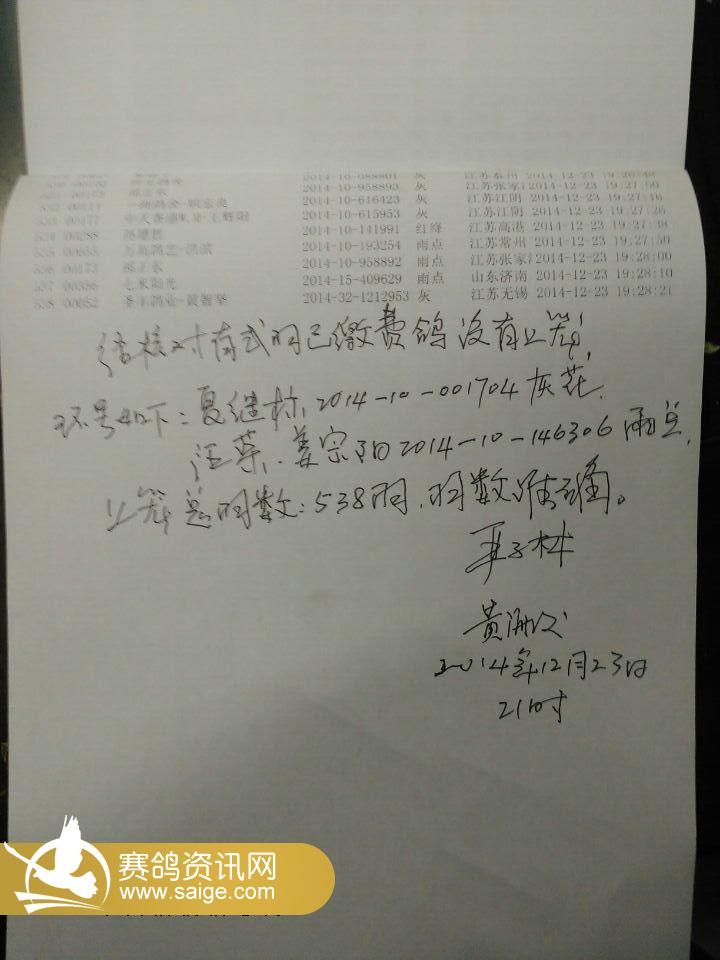 2014-10-088801 灰 江苏 2014-12-23 19:26:48
00173 邢正东 2014-10-958893 灰 江苏张家 2014-12-23 19:27:00
532 00111 2014-10-616423 灰 江苏江阴 2014-12-23 19:27:16
533 00177 王辉阳 2014-10-615953 灰 江苏江阴 2014-12-23 19:27:26
534 00288 2014-10-141991 红绛 江苏高港 2014-12-23 19:27:38
535 00655 2014-10-193254 雨点 江苏常州 2014-12-23 19:27:50
536 00173 邢正东 2014-10-958892 雨点 江苏张家 2014-12-23 19:28:00
537 00356 七米阳光 2014-15-409629 雨点 山东济南 2014-12-23 19:28:10
538 00052 圣丰鸽业-黄智坚 2014-32-1212953 灰 江苏无锡 2014-12-23 19:28:21
核对有弍羽已缴费鸽没有上笼,
环号如下:夏继标,2014-10-001704灰花.
汪荣、姜宗阳2014-10-146306雨点.
上笼总羽数:538羽.羽数准确。
黄
2014年12月23日
21时
赛鸽资讯网
www.saige.com